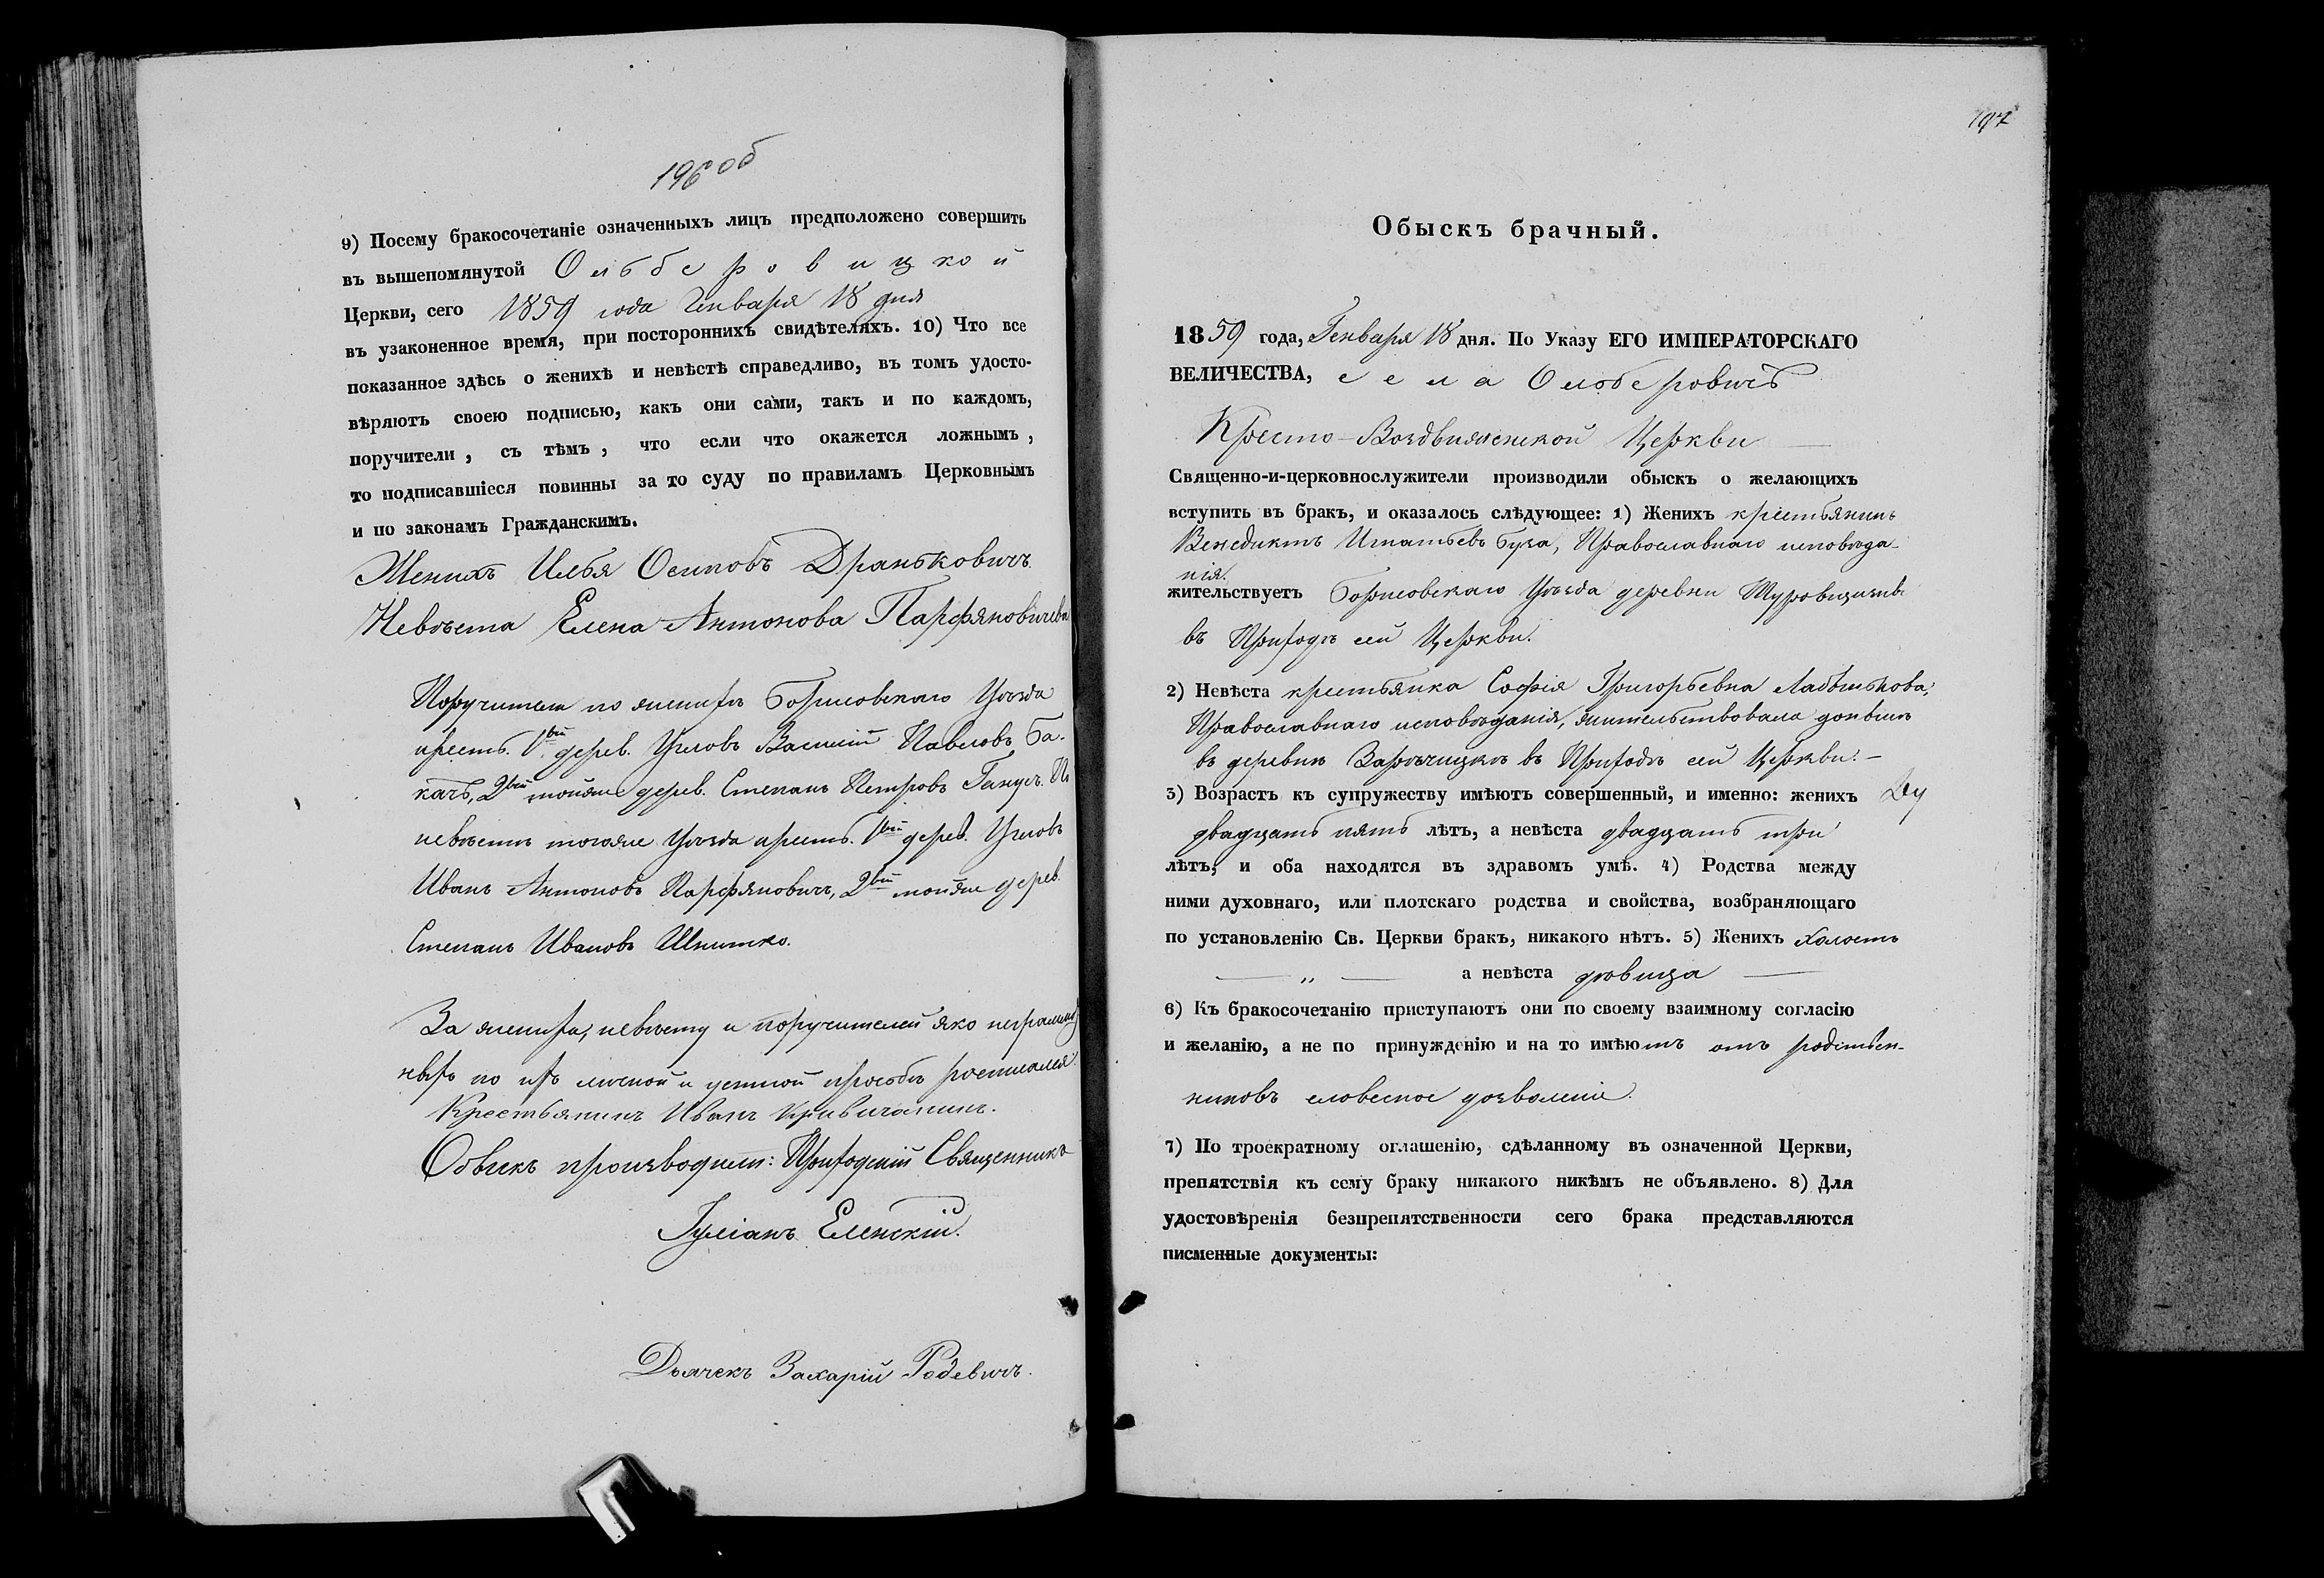 196 об
9) Посему бракосочетаніе означенныхъ лицъ предположено совершить
въ вышепомянутой Ольберовицкой
Церкви, сего 1859 года Генваря 18 дня
въ узаконенное время, при постороннихъ свидѣтеляхъ. 10) Что все
показанное здѣсь о женихѣ и невѣстѣ справедливо, въ томъ удосто-
вѣряютъ своею подписью, какъ они сами, такъ и по каждомъ,
поручители, съ тѣмъ, что если что окажется ложнымъ,
то подписавшіеся повинны за то суду по правиламъ Церковнымъ
и по законамъ Гражданскимъ.
Женихъ Илья Осиповъ Драньковичъ
Невѣста Елена Антонова Парфяновичева
Поручители по женихѣ Борисовскаго Уѣзда
крест. 1вый дерев. Углов Василій Павловъ Ба-
качъ, 2вый тойже дерев. Степанъ Петровъ Ганус. П
невѣстѣ тогоже Уѣзда крест. 1вый дерев. Угловъ
Иванъ Антоновъ Парфяновичъ, 2вый тойже дерев.
Степанъ Ивановъ Шпитко.
За жениха, невѣсту и поручителей яко неграмот
ныхъ по ихъ личной и устной прозбѣ росписался
Крестьянинъ Иванъ Кривичанинъ.
Обыскъ производили: Приходскій Священникъ
Іуліанъ Еленскій.
Дьячекъ Захарій Родевичъ.
197
Обыскъ брачный.
1859 года, Генваря 18 дня. По Указу ЕГО ИМПЕРАТОРСКАГО
ВЕЛИЧЕСТВА, села Олберовичъ
Кресто-Воздвиженской Церкви
Священно-и-церковнослужители производили обыскъ о желающихъ
вступить въ бракъ, и оказалось слѣдующее: 1) Женихъ крестьянинъ
Венедиктъ Игнатьевъ Буза, Православнаго исповѣда-
нія.
жительствуетъ Борисовскаго Уѣзда деревни
въ Приходѣ сей Церкви.
2) Невѣста крестьянка Софія Григорьевна
Православнаго исповѣданія, жительствовала донынѣ
въ деревнѣ Зарѣчицкѣ въ Приходѣ сей Церкви.
3) Возрастъ къ супружеству имѣютъ совершенный, и именно: женихъ Дв
двадцать пять лѣтъ, а невѣста двадцать три
лѣтъ, и оба находятся въ здравомъ умѣ. 4) Родства между
ними духовнаго, или плотскаго родства и свойства, возбраняющаго
по установленію Св. Церкви бракъ, никакого нѣтъ. 5) Женихъ холостъ
— „ — а невѣста дѣвица —
6) Къ бракосочетанію приступаютъ они по своему взаимному согласію
и желанію, а не по принужденію и на то имѣютъ отъ родствен-
никовъ словесное дозволеніе.
7) По троекратному оглашенію, сдѣланному въ означенной Церкви,
препятствія къ сему браку никакого никѣмъ не объявлено. 8) Для
удостовѣренія безпрепятственности сего брака представляются
писменные документы: